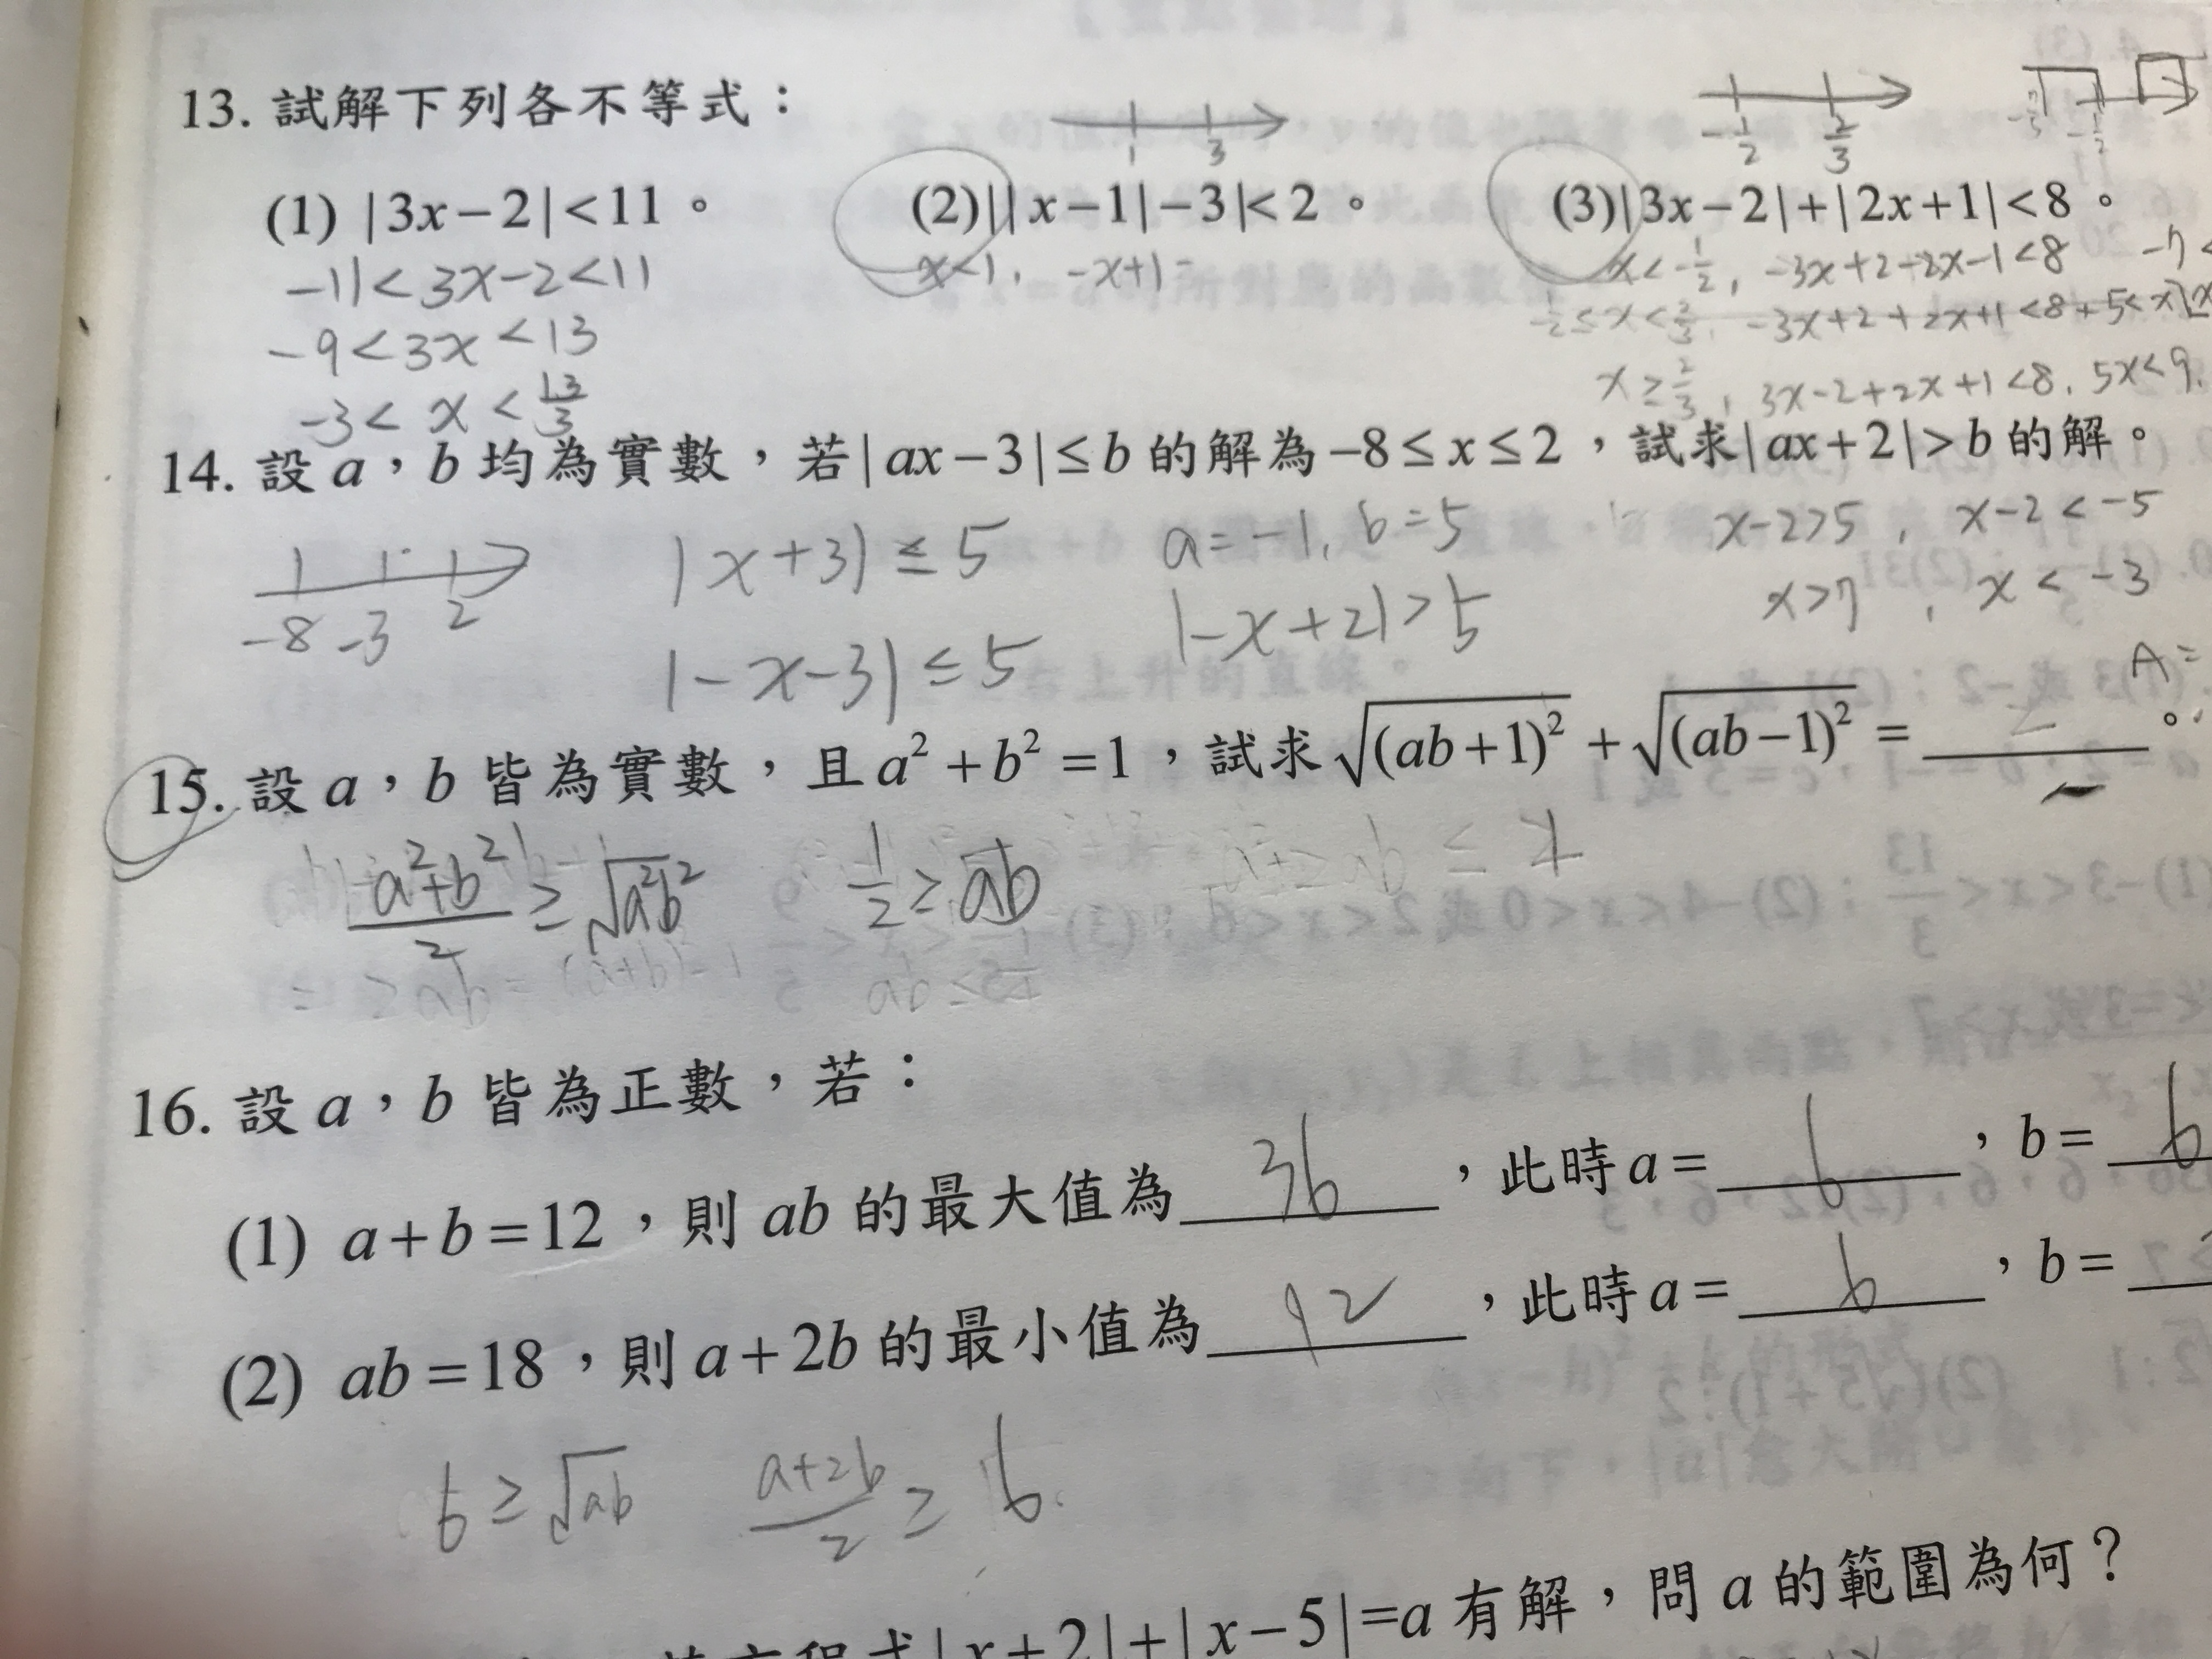 13. 試解下列各不等式：
1 3
-1/2 2/3
(1) |3x-2|<11。 (2)||x-1|-3|<2。 (3)|3x-2|+|2x+1|<8。
-11<3x-2<11 x<1, -x+1- x<-1/2, -3x+2-2x-1<8
-9<3x<13 -3x+2+2x+1<8
-3<x<13/3 x≥2/3, 3x-2+2x+1<8, 5x<9
14. 設 a，b 均為實數，若|ax-3|≤b 的解為-8≤x≤2，試求|ax+2|>b 的解。
|x+3|≤5 a=-1, b=5 x-2>5, x-2<-5
-8 -3 2 |-x-3|≤5 |-x+2|>5 x>7, x<-3
A=
15. 設 a，b 皆為實數，且 a²+b²=1，試求√(ab+1)²+√(ab-1)²= 2 。
(a²+b²)/2≥√a²b² 1/2≥ab
16. 設 a，b 皆為正數，若：
(1) a+b=12，則 ab 的最大值為 36 ，此時 a= 6 ，b= 6
(2) ab=18，則 a+2b 的最小值為 12 ，此時 a= 6 ，b=
6≥√ab (a+2b)/2≥6
|x+2|+|x-5|=a 有解，問 a 的範圍為何？